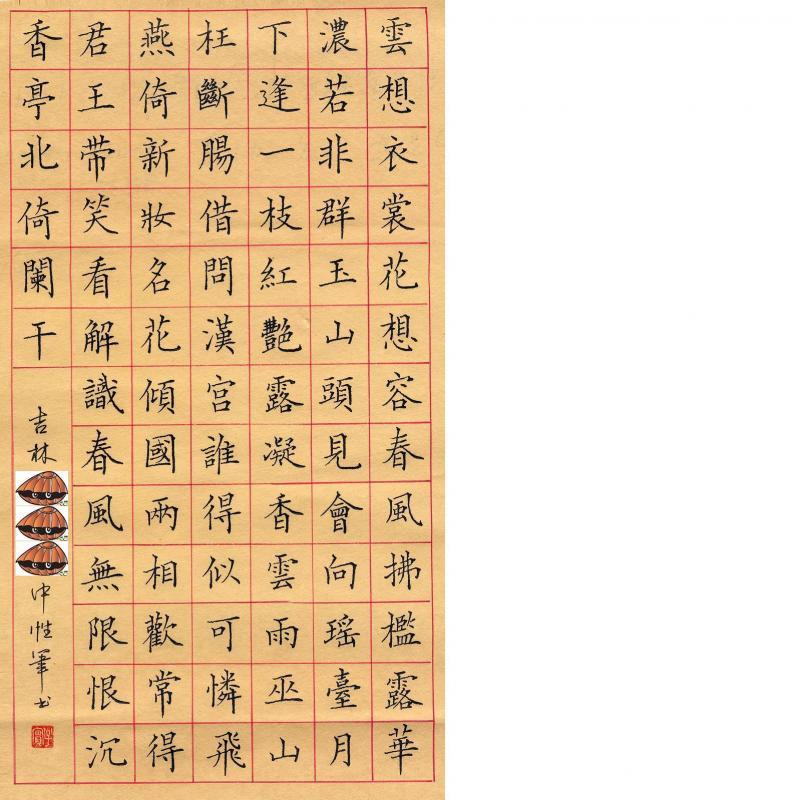 雲想衣裳花想容春風拂檻露華
濃若非群玉山頭見會向瑶臺月
下逢一枝紅艷露凝香雲雨巫山
枉斷腸借問漢宮誰得似可憐飛
燕倚新妝名花傾國兩相歡常得
君王带笑看解識春風無限恨沉
香亭北倚闌干
吉林
中性筆书